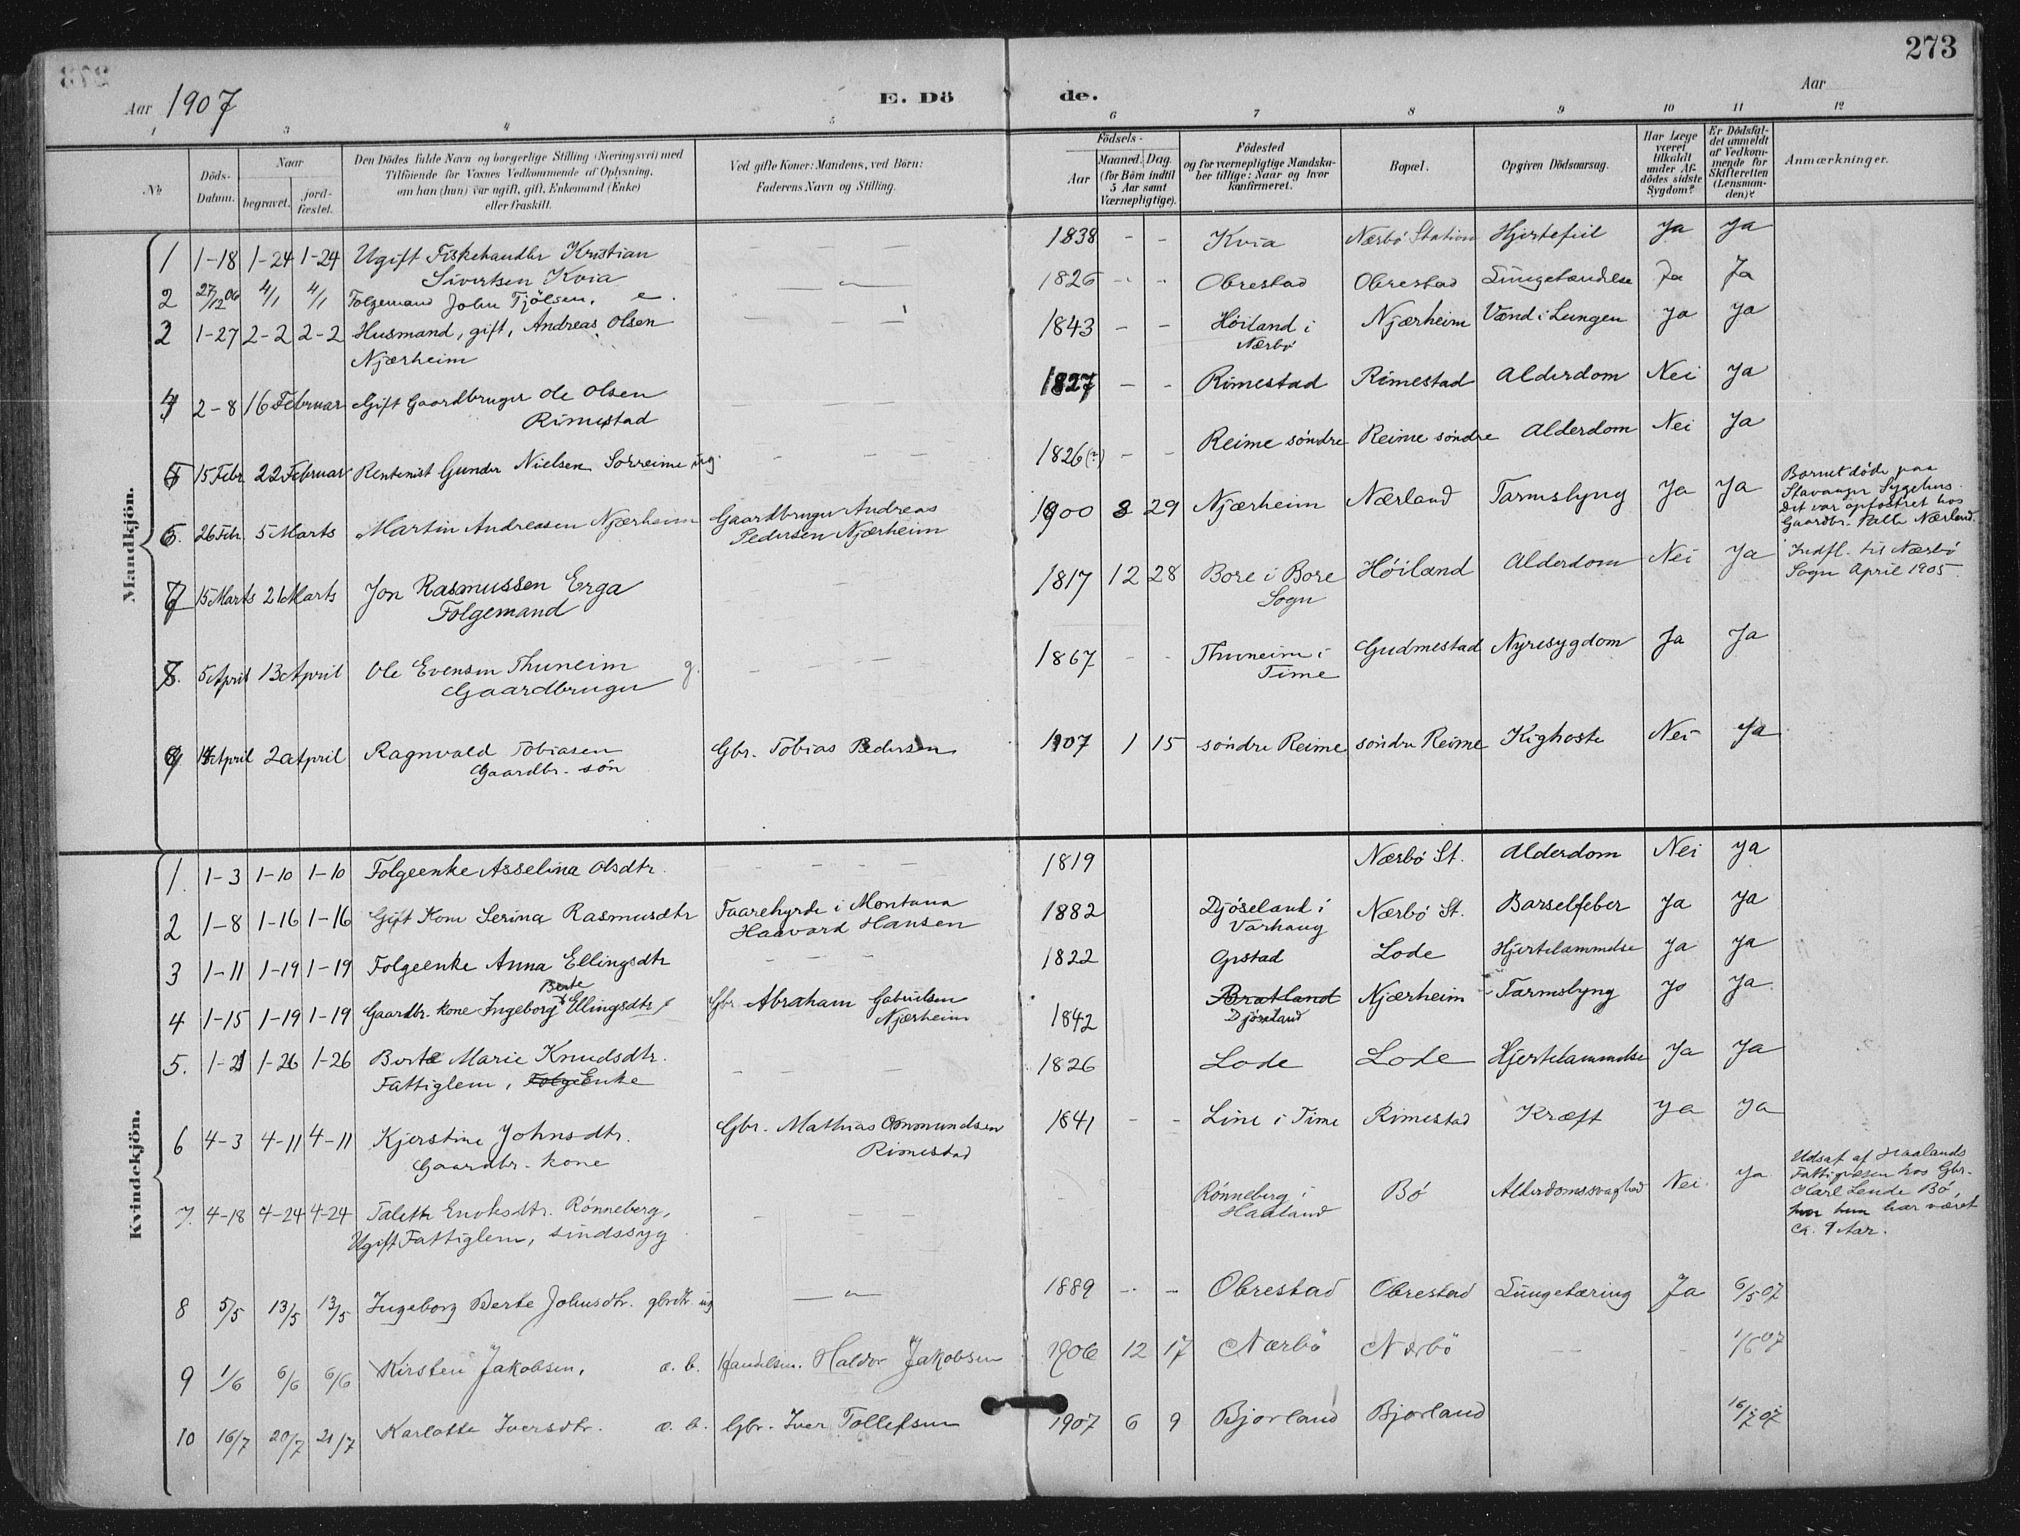 273
Aar 1907
E. Dö de.
Aar
1 3 4 5 6 7 8 9 10 11 12
No
Döds-Datum.
Naar
begravet.
jord-fæstet.
Den Dödes fulde Navn og borgerlige Stilling (Næringsvei) med
Tilföiende for Voxnes Vedkommende af Oplysning,
om han (hun) var ugift, gift, Enkemand (Enke)
eller fraskilt.
Ved gifte Koner: Mandens, ved Börn:
Faderens Navn og Stilling.
Födsels-
Aar
Maaned. Dag.
(for Börn indtil
5 Aar samt
Værnepligtige).
Födested
og for værnepligtige Mandska-
ber tillige: Naar og hvor
konfirmeret.
Bopæl.
Opgiven Dödsaarsag.
Har Læge
været
tilkaldt
under Af-
dödes sidste
Sygdom?
Er Dödsfal-
det anmeldt
af Vedkom-
mende for
Skifteretten
(Lensman-
den)?
Anmærkninger.
Mandkjön.
1 1-18 1-24 1-24 Ugift Fiskehandler Kristian — — — 1838 - - Kvia Nærbö Station Hjertefeil Ja Ja
Sivertsen Kvia
2 27/12 06 4/1 4/1 Folgemand John Tjölsen, e. —„— 1826 - - Obrestad Obrestad Lungebetændelse Ja Ja
3 1-27 2-2 2-2 Husmand, gift, Andreas Olsen — — — 1843 - - Höiland i Njærheim Vand i Lungen Ja Ja
Njærheim Nærbö
4 2-8 16 Februar Gift Gaardbruger Ole Olsen — — — 1827 - - Rimestad Rimestad Alderdom Nei Ja
Rimestad
5 15 Febr 22 Februar Rentenist Gunder Nielsen Sörreime ug. — — — 1826(?) - - Reime söndre Reime söndre Alderdom Nei Ja
6. 26 Febr. 5 Marts Martin Andreasen Njærheim Gaardbruger Andreas 1900 8 29 Njærheim Nærland Tarmslyng Ja Ja
Pedersen Njærheim
Barnet döde paa
Stavanger Sygehus.
Det var opfostret hos
Gaardbr. Nærland.
7 15 Marts 21 Marts Jon Rasmussen Erga 1817 12 28 Bore i Bore Höiland Alderdom Nei Ja
Folgemand Sogn
Indfl. til Nærbö
Sogn April 1905.
8. 5 April 13 April Ole Evensen Thuneim g. — — — 1867 - - Thuneim i Gudmestad Nyresygdom Ja Ja
Gaardbruger Time
9 April 2 April Ragnvald Tobiasen Gbr. Tobias Pedersen 1907 1 15 söndre Reime söndre Reime Kighoste Nei Ja
Gaardbr. sön
Kvindekjön.
1. 1-3 1-10 1-10 Folgeenke Asselina Olsdtr. — — — 1819 Nærbö St. Alderdom Nei Ja
2 1-8 1-16 1-16 Gift Kone Serina Rasmusdtr Faarehyrde i Montana 1882 Djöseland i Nærbö St. Barselfeber Ja Ja
Haavard Hansen Varhaug
3 1-11 1-19 1-19 Folgeenke Anna Ellingsdtr — — — 1822 Opstad Lode Hjertelammelse Ja Ja
Berte
4 1-15 1-19 1-19 Gaardbr. kone Ingeborg Ellingsdtr Gbr. Abraham Gabrielsen 1842 Bratland Njærheim Tarmslyng Ja Ja
Njærheim Djöseland
5. 1-21 1-26 1-26 Berte Marie Knudsdtr. — — — 1826 Lode Lode Hjertelammelse Ja Ja
Fattiglem, Folge Enke
6 4-3 4-11 4-11 Kjerstine Johnsdtr. Gbr. Mathias Ommundsen 1841 - - Line i Time Rimestad Kræft Ja Ja
Gaardbr. kone Rimestad
7. 4-18 4-24 4-24 Talette Enoksdtr. Rönneberg, — — — Rönneberg i Bö Alderdomssvaghed Nei Ja
Ugift Fattiglem, sindssyg Haaland
Udsat af Haalands
Fattigvæsen hos Gbr.
Karl Lende Bö,
hvor hun har været
ca. 9 Aar.
8 5/5 13/5 13/5 Ingeborg Berte Johnsdtr. gbrdtr. ug —„— 1889 - - Obrestad Obrestad Lungetæring Ja 6/5 07
9 1/6 6/6 6/6 Kirsten Jakobsen, æ. b. Handelsm. Haldor Jakobsen 1906 12 17 Nærbö Nærbö — — 1/6 07
10 16/7 20/7 21/7 Karlotte Iversdtr. æ. b. Gbr. Iver Tollefsen 1907 6 9 Bjorland Bjorland 16/7 07